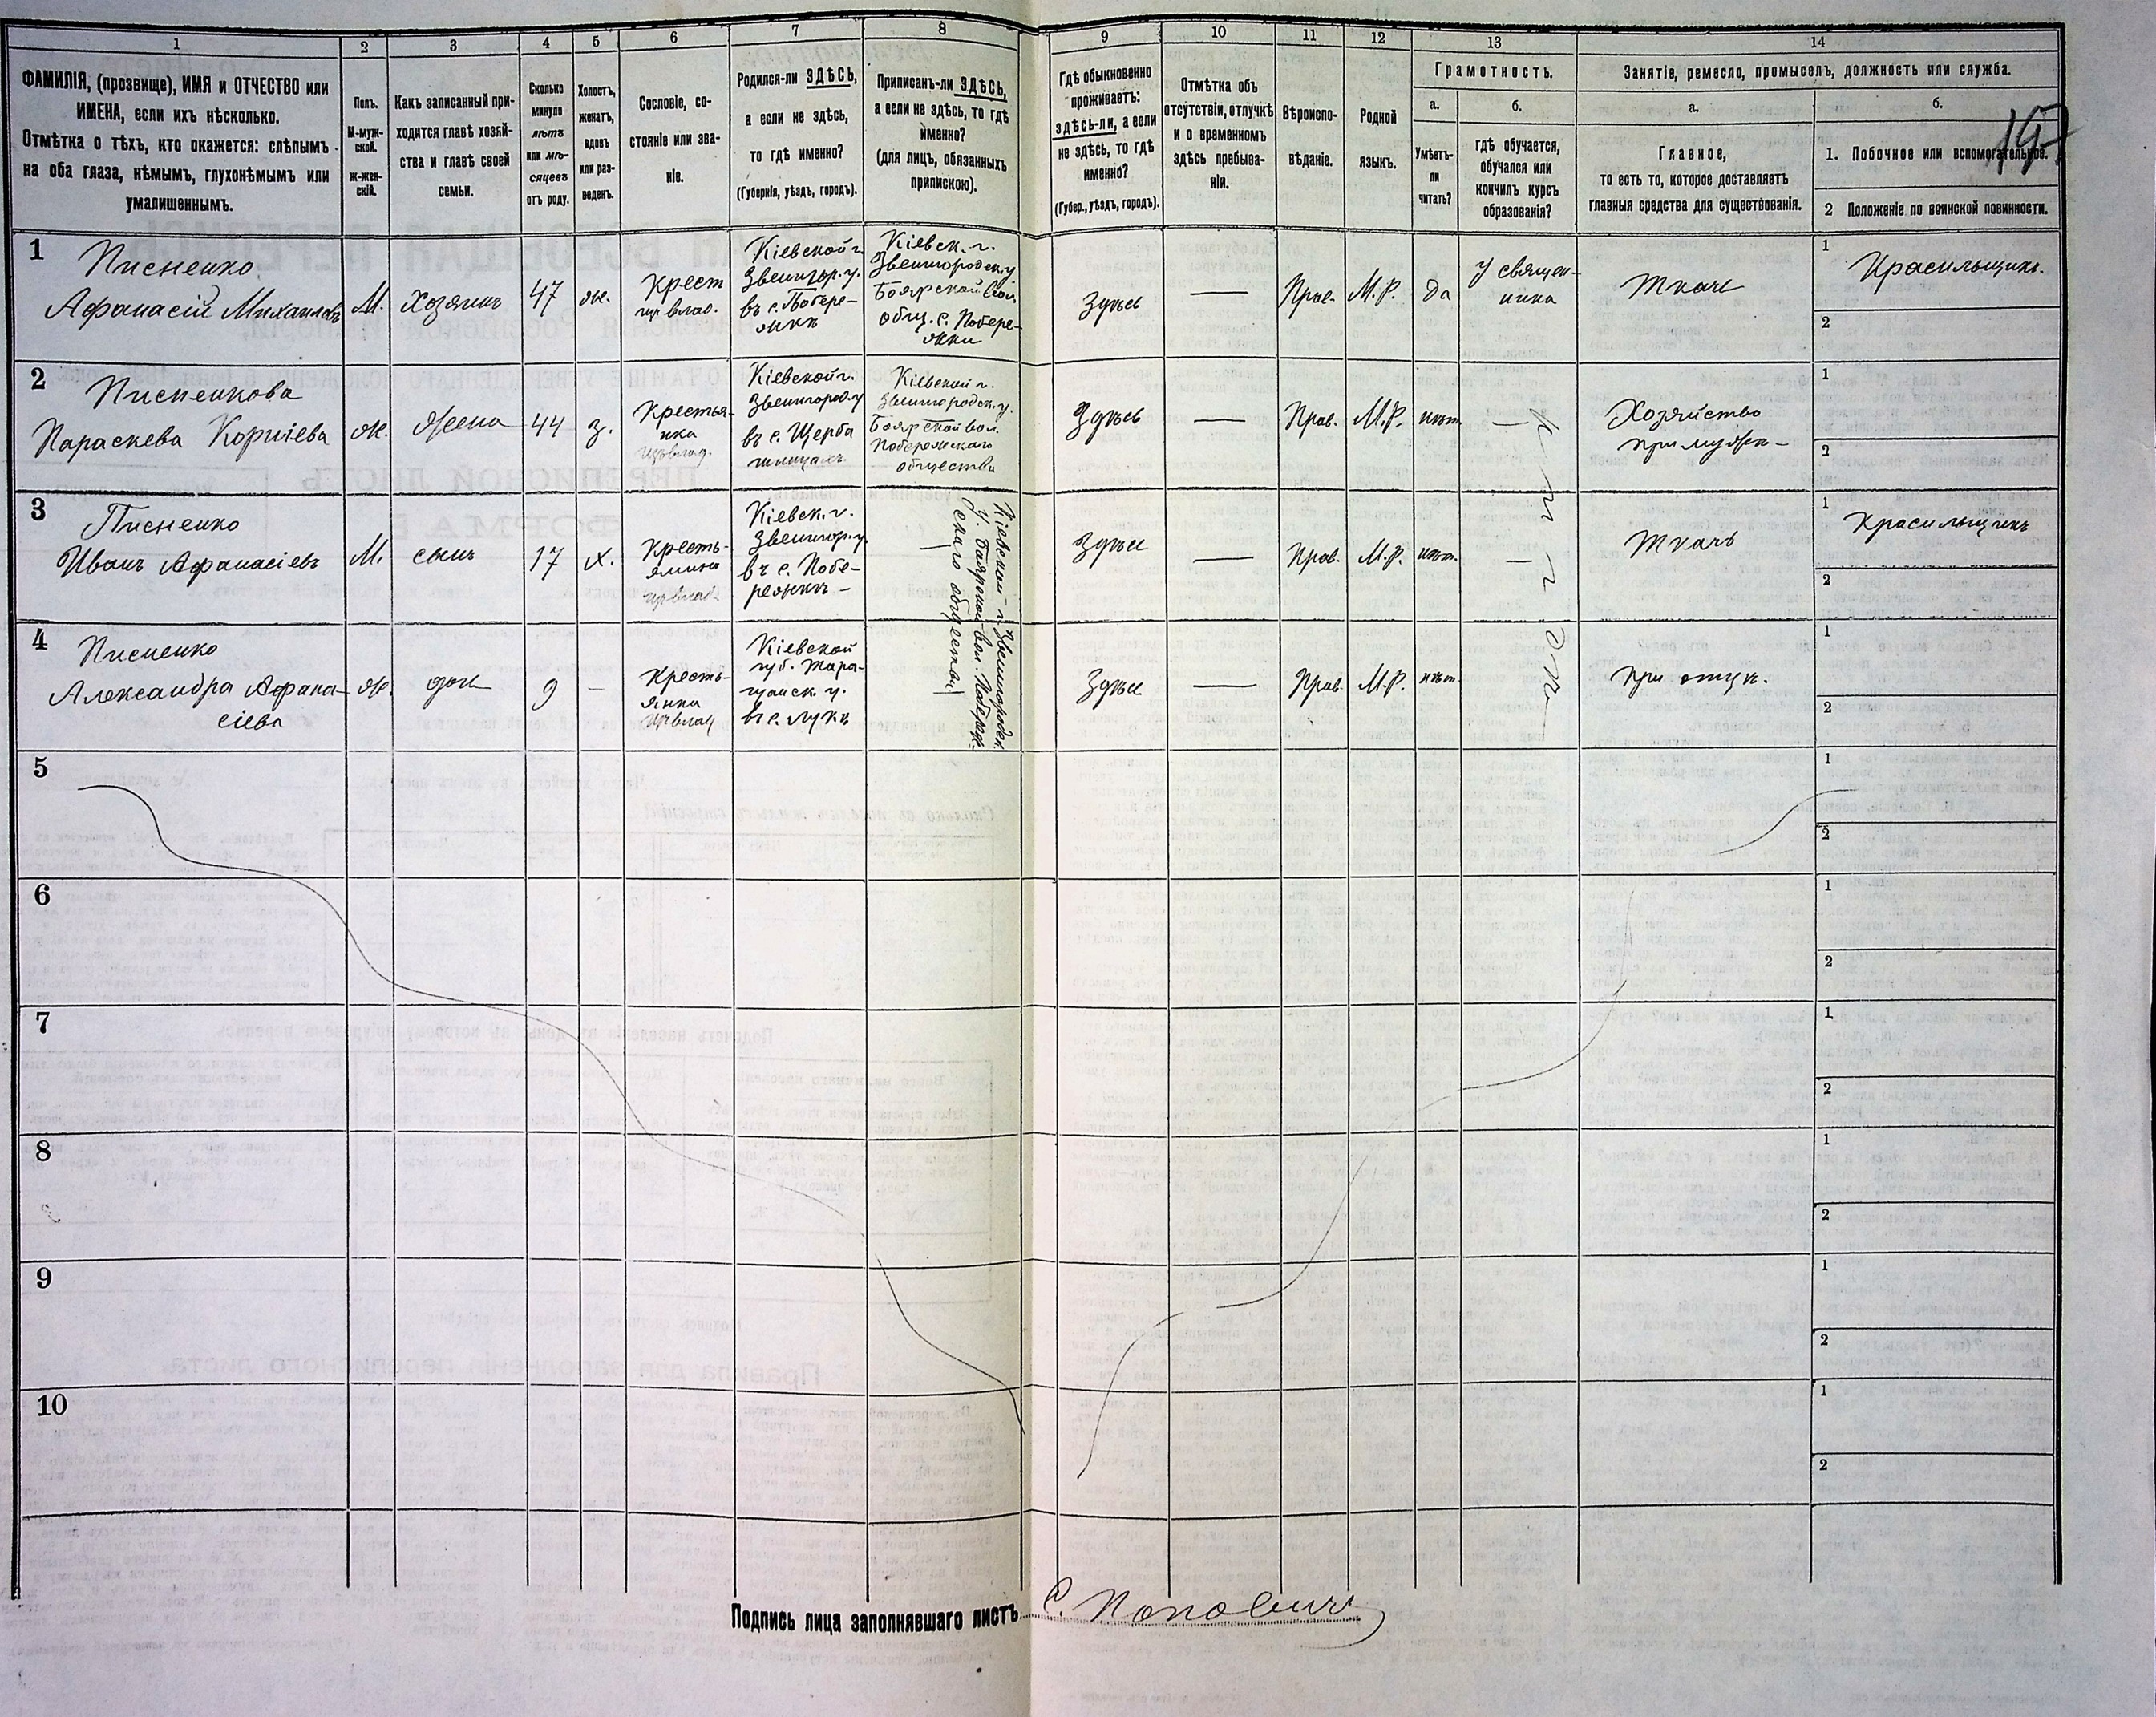 1 2 3 4 5 6 7 8 9 10 11 12 13 14
ФАМИЛІЯ, (прозвище), ИМЯ и ОТЧЕСТВО или
ИМЕНА, если ихъ нѣсколько.
Отмѣтка о тѣхъ, кто окажется: слѣпымъ
на оба глаза, нѣмымъ, глухонѣмымъ или
умалишеннымъ.
Полъ.
М-муж-
ской.
ж-жен-
скій.
Какъ записанный при-
ходится главѣ хозяй-
ства и главѣ своей
семьи.
Сколько
минуло
лѣтъ
или мѣ-
сяцевъ
отъ роду.
Холостъ,
женатъ,
вдовъ
или раз-
веденъ.
Сословіе, со-
стояніе или зва-
ніе.
Родился-ли ЗДѢСЬ,
а если не здѣсь,
то гдѣ именно?
(Губернія, уѣздъ, городъ).
Приписанъ-ли ЗДѢСЬ,
а если не здѣсь, то гдѣ
именно?
(для лицъ, обязанныхъ
припискою).
Гдѣ обыкновенно
проживаетъ:
здѣсь-ли, а если
не здѣсь, то гдѣ
именно?
(Губер., уѣздъ, городъ).
Отмѣтка объ
отсутствіи, отлучкѣ
и о временномъ
здѣсь пребыва-
ніи.
Вѣроиспо-
вѣданіе.
Родной
языкъ.
Грамотность.
а.
Умѣетъ-
ли
читать?
б.
гдѣ обучается,
обучался или
кончилъ курсъ
образованія?
Занятіе, ремесло, промыселъ, должность или служба.
а.
Главное,
то есть то, которое доставляетъ
главныя средства для существованія.
б.
197
1. Побочное или вспомогательное.
2 Положеніе по воинской повинности.
1
Писненко
Афанасій Михаилов
М.
Хозяинъ
47
ж.
Крест
из влад.
Кіевской г.
Звенигор. у.
въ с. Побере-
жкѣ
Кіевск. г.
Звенигородск. у.
Боярской вол.
общ. с. Побере-
жки
Здѣсь
—
Прав.
М.Р.
да
У священ-
ника
Ткачъ
1
Красильщикъ.
2
2
Писненкова
Параскева Корніева
ж.
Жена
44
з.
Крестья-
нка
изъ влад.
Кіевской г.
Звенигород. у
въ с. Щерба
шинцахъ
Кіевской г.
Звенигородск. у.
Боярской вол.
Побережскаго
общества
Здѣсь
—
Прав.
М.Р.
нѣт.
—
Хозяйство
при мужѣ—
1
2
3
Писненко
Иванъ Афанасіевъ
М.
сынъ
17
х.
Кресть-
янинъ
изъ влад.
Кіевск. г.
Звенигор. у.
въ с. Побе-
режкѣ—
Кіевской г. Звенигородск.
у. Боярской вол. Побереж-
скаго общества
Здѣсь
—
Прав.
М.Р.
нѣт.
—
Ткачъ
1
Красильщикъ
2
4
Писненко
Александра Афана-
сіева
ж.
дочь
9
—
Кресть-
янка
изъ влад
Кіевской
губ. Тара-
щанск. у.
въ с. Лукѣ
Здѣсь
—
Прав.
М.Р.
нѣт.
При отцѣ.
1
2
5
1
2
6
1
2
7
1
2
8
1
2
9
1
2
10
1
2
Подпись лица заполнявшаго листъ С. Поповичъ